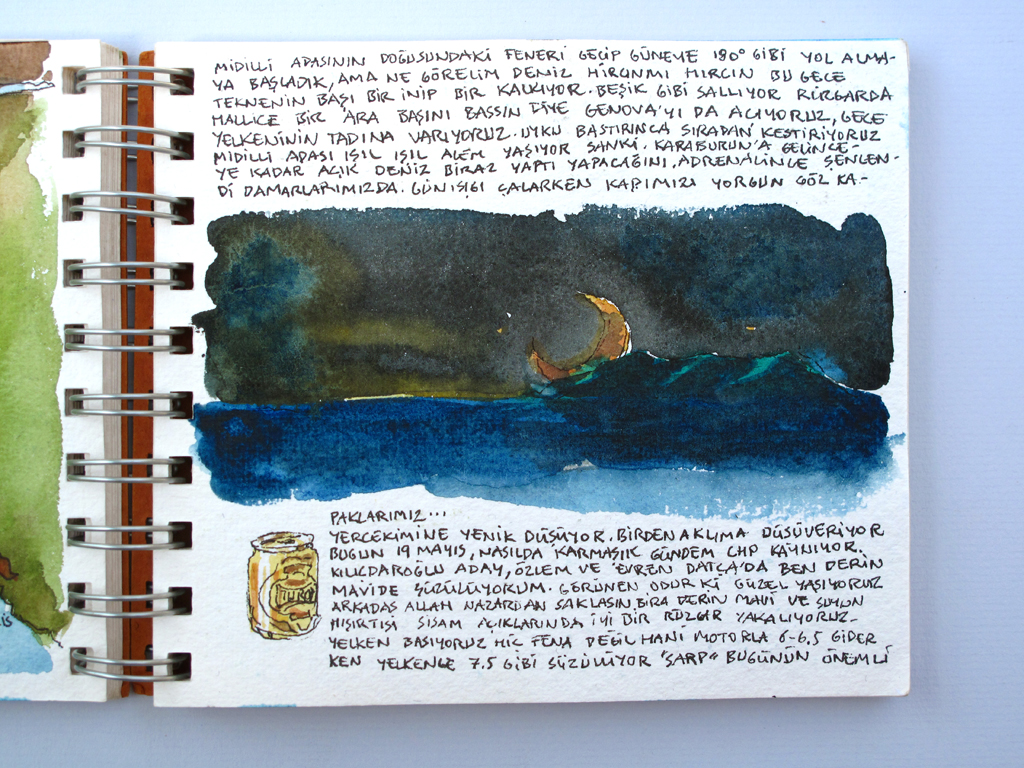 MİDİLLİ ADASININ DOĞUSUNDAKİ FENERİ GEÇİP GÜNEYE 180° GİBİ YOL ALMA-
YA BAŞLADIK, AMA NE GÖRELİM DENİZ HIRÇINMI HIRÇIN BU GECE
TEKNENİN BAŞI BİR İNİP BİR KALKIYOR. BEŞİK GİBİ SALLIYOR RÜZGARDA
HALLİCE BİR ARA BAŞINI BASSIN DİYE GENOVA'YI DA AÇIYORUZ, GECE
YELKENİNİN TADINA VARIYORUZ. UYKU BASTIRINCA SIRADAN KESTİRİYORUZ
MİDİLLİ ADASI IŞIL IŞIL ALEM YAŞIYOR SANKİ. KARABURUN'A GELİNCE-
YE KADAR AÇIK DENİZ BİRAZ YAPTI YAPACAĞINI, ADRENALİNLE ŞENLEN-
Dİ DAMARLARIMIZDA. GÜNIŞIĞI ÇALARKEN KAPIMIZI YORGUN GÖZ KA.-
PAKLARIMIZ...
YERÇEKİMİNE YENİK DÜŞÜYOR. BİRDEN AKLIMA DÜŞÜVERİYOR
BUGÜN 19 MAYIS, NASILDA KARMAŞIK GÜNDEM CHP KAYNIYOR.
KILIÇDAROĞLU ADAY, ÖZLEM VE EVREN DATÇA'DA BEN DERİN
MAVİDE SÜZÜLÜYORUM. GÖRÜNEN ODUR Kİ GÜZEL YAŞIYORUZ
ARKADAŞ ALLAH NAZARDAN SAKLASIN, BİRA DERİN MAVİ VE SUYUN
HIŞIRTISI SİSAM AÇIKLARINDA İYİ BİR RÜZGAR YAKALIYORUZ.
YELKEN BASIYORUZ HİÇ FENA DEĞİL HANİ MOTORLA 6-6,5 GİDER
KEN YELKENLE 7.5 GİBİ SÜZÜLÜYOR "SARP" BUGÜNÜN ÖNEMLİ